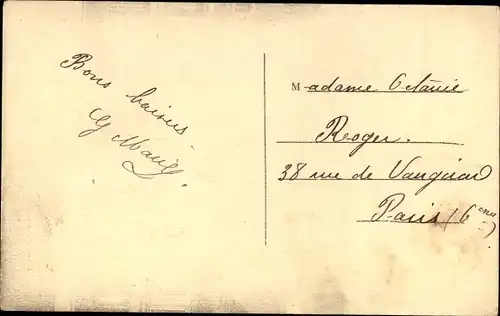 Bons baisers
G Mary.
Madame Octavie
Roger.
38 rue de Vaugirard
Paris (6eme)